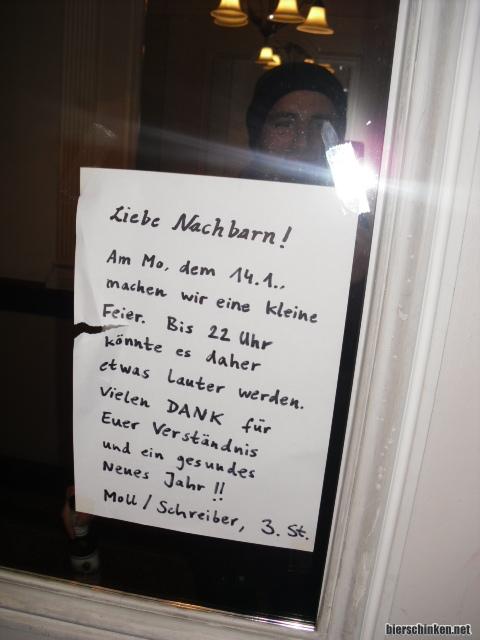 Liebe Nachbarn!
Am Mo, dem 14.1.,
machen wir eine kleine
Feier. Bis 22 Uhr
könnte es daher
etwas lauter werden.
Vielen DANK für
Euer Verständnis
und ein gesundes
Neues Jahr!!
Moll/Schreiber, 3. St.
bierschinken.net